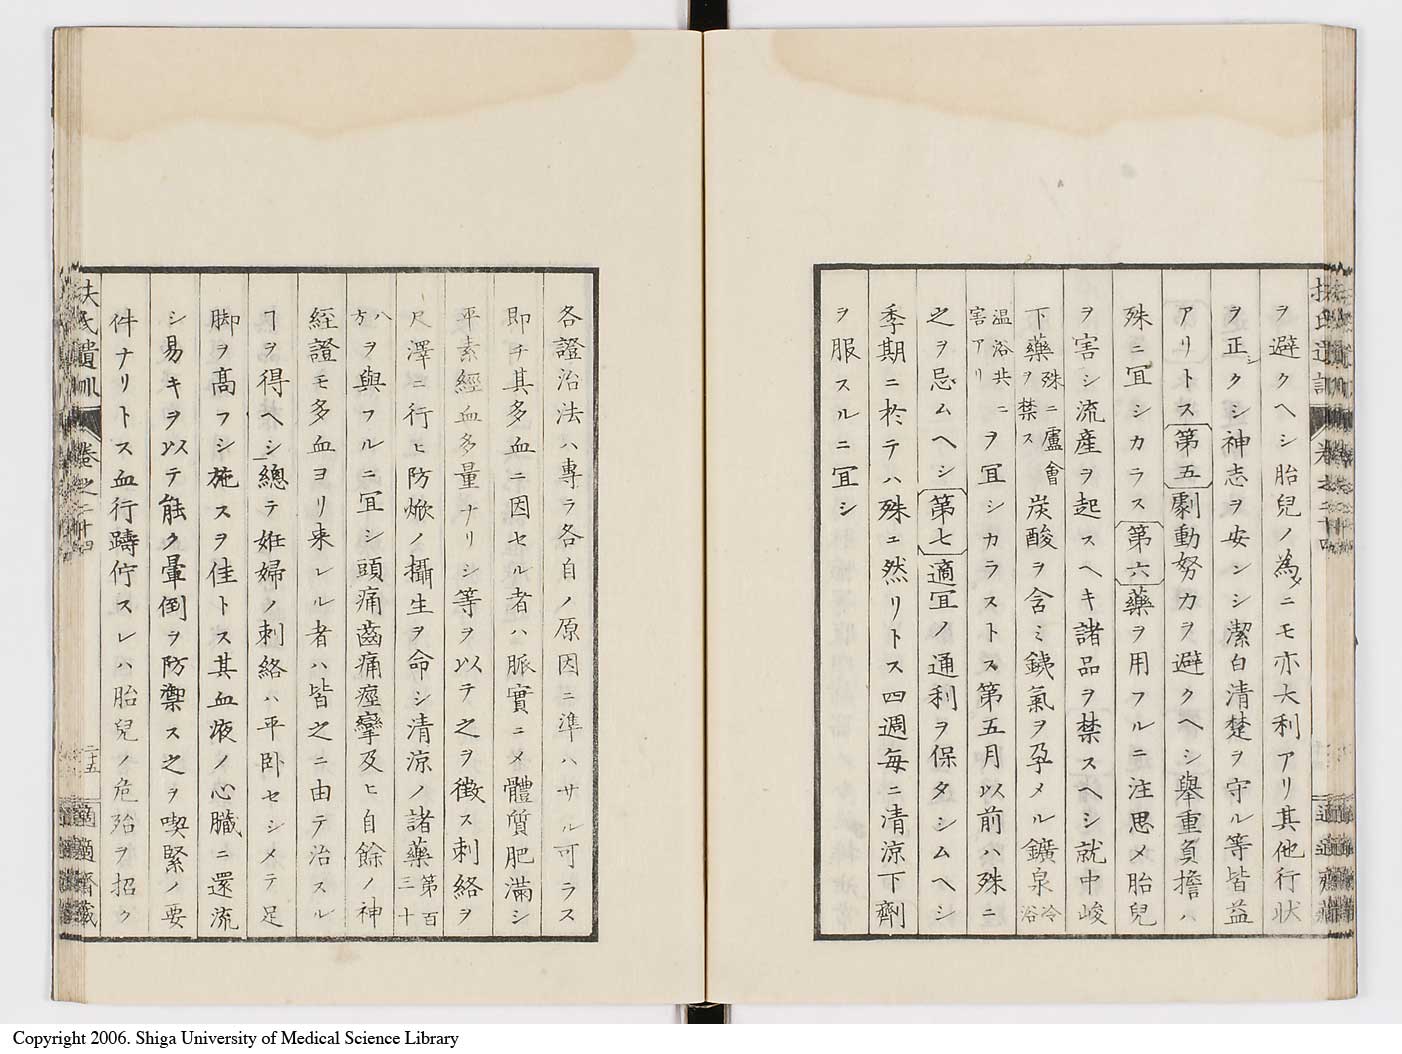 ヲ避クヘシ胎兒ノ為メニモ亦大利アリ其他行狀
ヲ正シクシ神志ヲ安ンシ潔白清楚ヲ守ル等皆益
アリトス第五劇動努力ヲ避クヘシ舉重負擔ハ
殊ニ冝シカラス第六藥ヲ用フルニ注思メ胎兒
ヲ害シ流産ヲ起スヘキ諸品ヲ禁スヘシ就中峻
下藥殊ニ蘆會ヲ禁ス炭酸ヲ含ミ銕氣ヲ孕メル鑛泉冷浴
温浴共ニ害アリヲ冝シカラストス第五月以前ハ殊ニ
之ヲ忌ムヘシ第七適冝ノ通利ヲ保タシムヘシ
季期ニ於テハ殊ニ然リトス四週毎ニ清涼下劑
ヲ服スルニ冝シ
扶氏遺訓
卷之二十四
適適齋藏
各證治法ハ專ラ各自ノ原因ニ準ハサル可ラス
即チ其多血ニ因セル者ハ脈實ニメ體質肥滿シ
平素經血多量ナリシ等ヲ以テ之ヲ徴ス刺絡ヲ
尺澤ニ行ヒ防焮ノ攝生ヲ命シ清涼ノ諸藥第百三十
八方ヲ與フルニ冝シ頭痛齒痛痙攣及ヒ自餘ノ神
經證モ多血ヨリ来レル者ハ皆之ニ由テ治スル
ヿヲ得ヘシ總テ姙婦ノ刺絡ハ平卧セシメテ足
脚ヲ髙フシ施スヲ佳トス其血液ノ心臓ニ還流
シ易キヲ以テ能ク暈倒ヲ防禦ス之ヲ喫緊ノ要
件ナリトス血行躊佇スレハ胎兒ノ危殆ヲ招ク
扶氏遺訓
卷之二十四
二十五
適適齋藏
Copyright 2006. Shiga University of Medical Science Library